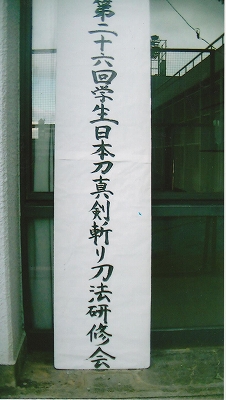 第二十六回学生日本刀真剣斬り刀法研修会